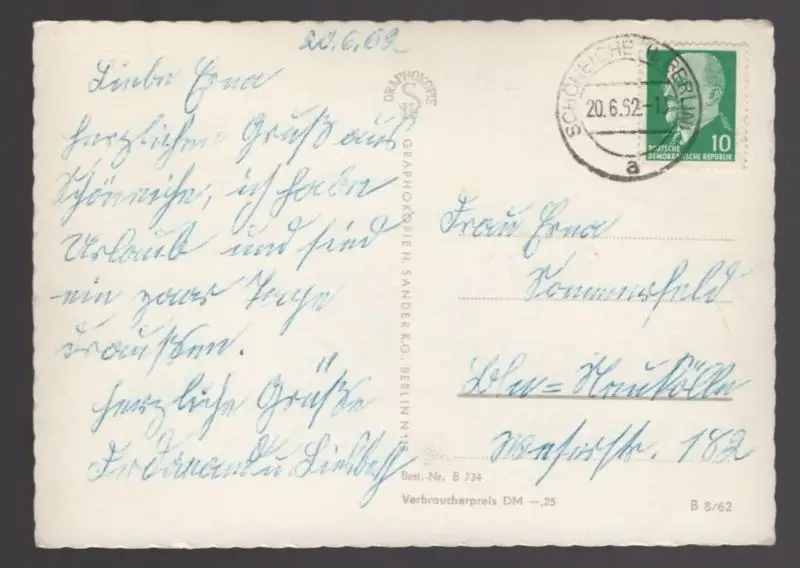 20.6.62
Liebe Erna
herzlichen Gruß aus
Schöneiche, ich habe
Urlaub und sind
ein paar Tage
draußen.
herzliche Grüße
Ferdinand u. Liesbeth
GRAPHOKOPIE
GRAPHOKOPIE H. SANDER K.G., BERLIN N 113
SCHÖNEICHE b. BERLIN
20.6.62.-1
a
10
DEUTSCHE
DEMOKRATISCHE REPUBLIK
Frau Erna
Sommerfeld
Bln = Neukölln
Weserstr. 182
Best.-Nr. B 734
Verbraucherpreis DM —,25
B 8/62